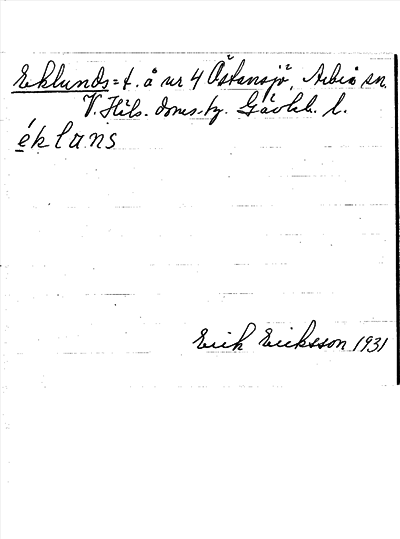 Eklunds = t. å nr 4 Östansjö, Arbrå sn.
V. Häls. doms.-hg. Gävleb. l.
éklans
Erik Eriksson 1931